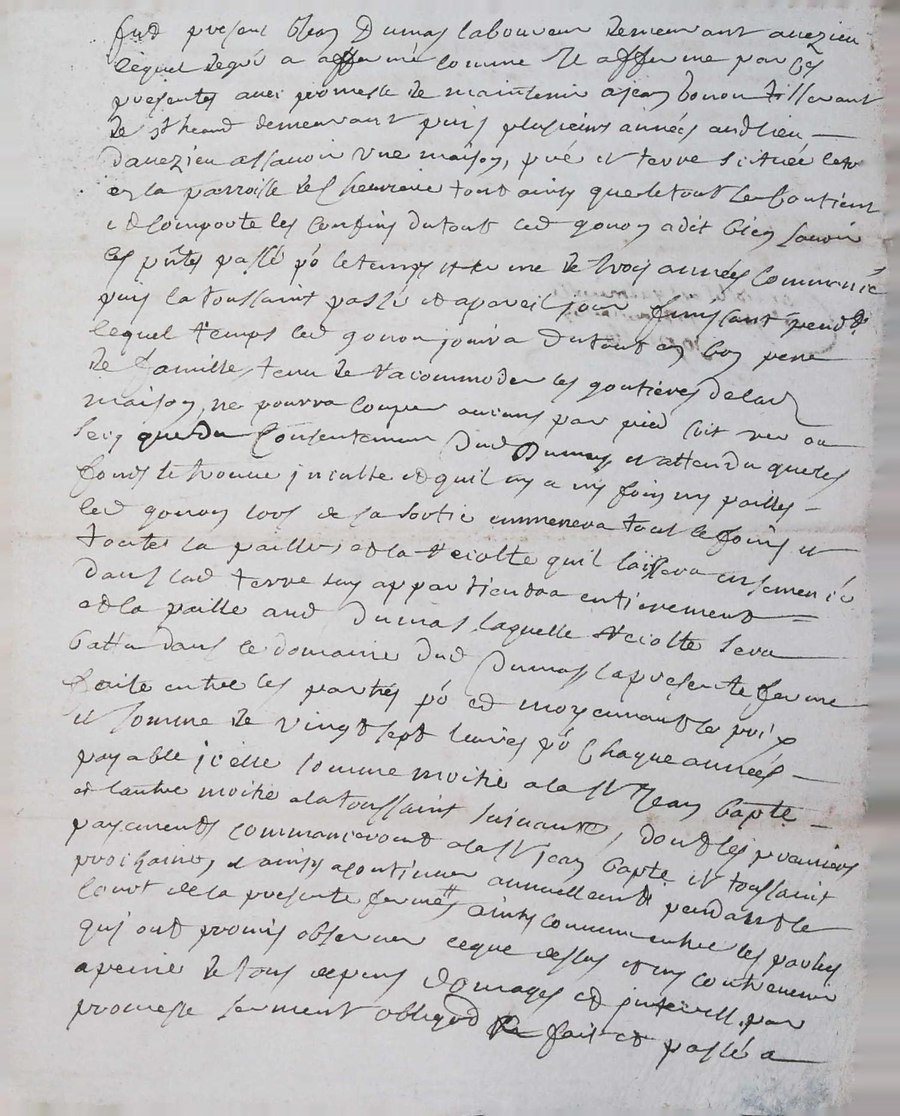 fut present Jean Dumas laboureur demeurant a uezieu
lequel de gré a affermé comme il afferme par ces
presentes avec promesse de maintenir a jean Gonon tisserant
de st heand demeurant puis plusieurs années aud lieu
dauezieu assauoir vne maison, pré et terre située
en la parroisse de Cheuriere tout ainsy que le tout se contient
et comporte les confins du tout led gonon a dit bien sauoir
ces pntes passé po le temps et terme de trois années commencé
puis la toussaint passé et a pareil jour finissant pendt
lequel temps led gonon jouira du tout en bon pere
de famille, tenu de racommoder les goutieres de lad
maison, ne pourra couper aucuns par pied soit ver ou
secq que du consentement dud Dumas et attendu que les
fonds se trouue inculte et quil ny a ny foin ny pailles
led gonon lors de sa sortie emmenera tout le foins et
toutes la pailles et la recolte quil laissera ensemencé
dans lad terre luy appartiendra entierement
et la paille aud Dumas laquelle recolte sera
battu dans le domaine dud Dumas la presente ferme
faite entre les parties po et moyennant le prix
et somme de vingt sept liures po chaque années
payable icelle somme moitie a la st Jean bapte
et lautre moitie a la toussaint suiuante, dont les premiers
payements commanceront a la st jean bapte et toussaint
prochaine, et ainsy a continuer annuellemt pendant le
court de la presente ferme, ainsy conuenu entre les parties
qui ont promis obseruer ce que dessus et ny contreuenir
a peine de tous depens domages et interest, par
promesse serment obligaon fait et passé a